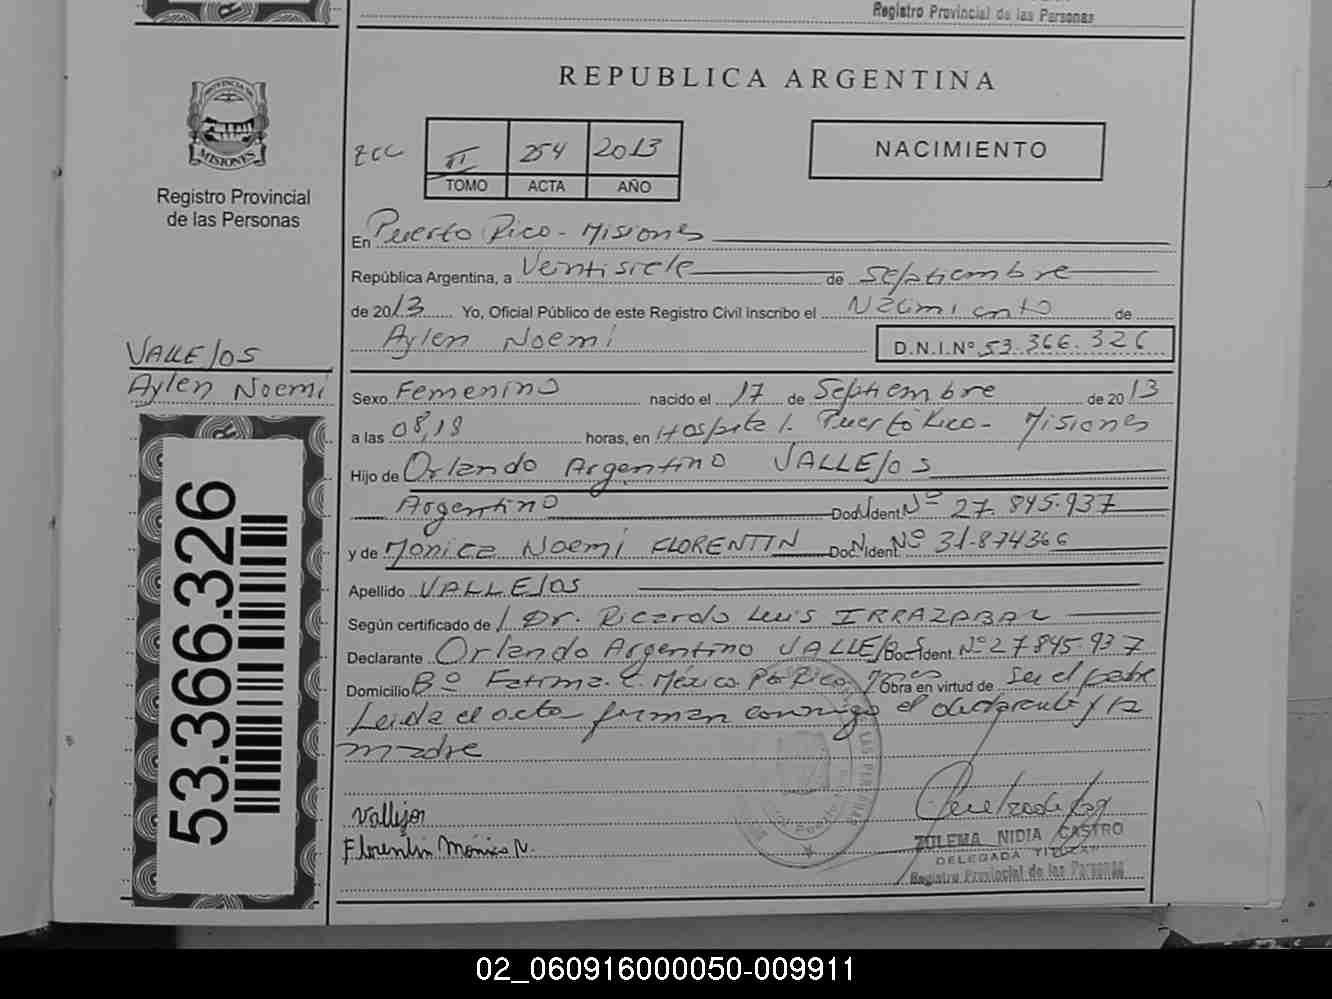 Registro Provincial de las Personas
REPUBLICA ARGENTINA
II 254 2013
TOMO ACTA AÑO
NACIMIENTO
MISIONES
Registro Provincial
de las Personas
En Puerto Rico - Misiones
República Argentina, a Veintisiete de Septiembre
de 2013 Yo, Oficial Público de este Registro Civil Inscribo el Nacimiento de
Aylen Noemi D.N.I.Nº 53.366.326
VALLEJOS
Aylen Noemi
53.366.326
Sexo Femenino nacido el 17 de Septiembre de 2013
a las 08,18 horas, en Hospital. Puerto Rico - Misiones
Hijo de Orlando Argentino VALLEJOS
Argentino Doc. Ident. Nº 27.845.937
y de Monica Noemi FLORENTIN Doc. Ident. Nº 31.874366
Apellido VALLEJOS
Según certificado de Dr. Ricardo Luis IRRAZABAL
Declarante Orlando Argentino VALLEJOS Doc. Ident. Nº 27845937
Domicilio Bº Fatima. C. México. Pto Rico Obra en virtud de ser el padre
Leida el acta firman conmigo el declarante y la
madre
Vallejos
Florentin Mónica N.
ZULEMA NIDIA CASTRO
DELEGADA TITULAR
Registro Provincial de las Personas
02_060916000050-009911